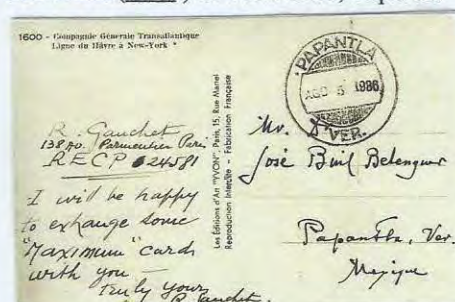 1600 - Compagnie Générale Transatlantique
Ligne du Hâvre à New-York
PAPANTLA
AGO 5 1936
VER.
R. Gauchet
138 Av. Parmentier Paris
RECP 24581
I will be happy
to exhange some
"Maximum" cards
with you -
truly yours
R. Gauchet.
Les Éditions d'Art "YVON", Paris, 15, Rue Martel
Reproduction Interdite - Fabrication Française
Mr. Dr
José Buil Belenguer
Papantla, Ver.
Mejique